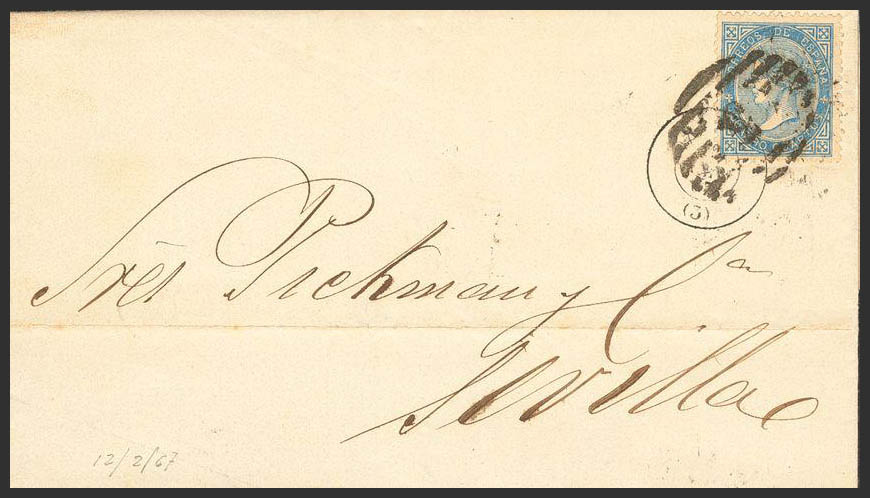 CORREOS DE ESPAÑA
(5)
Sres Pickman y Cia
Sevilla
12/2/67